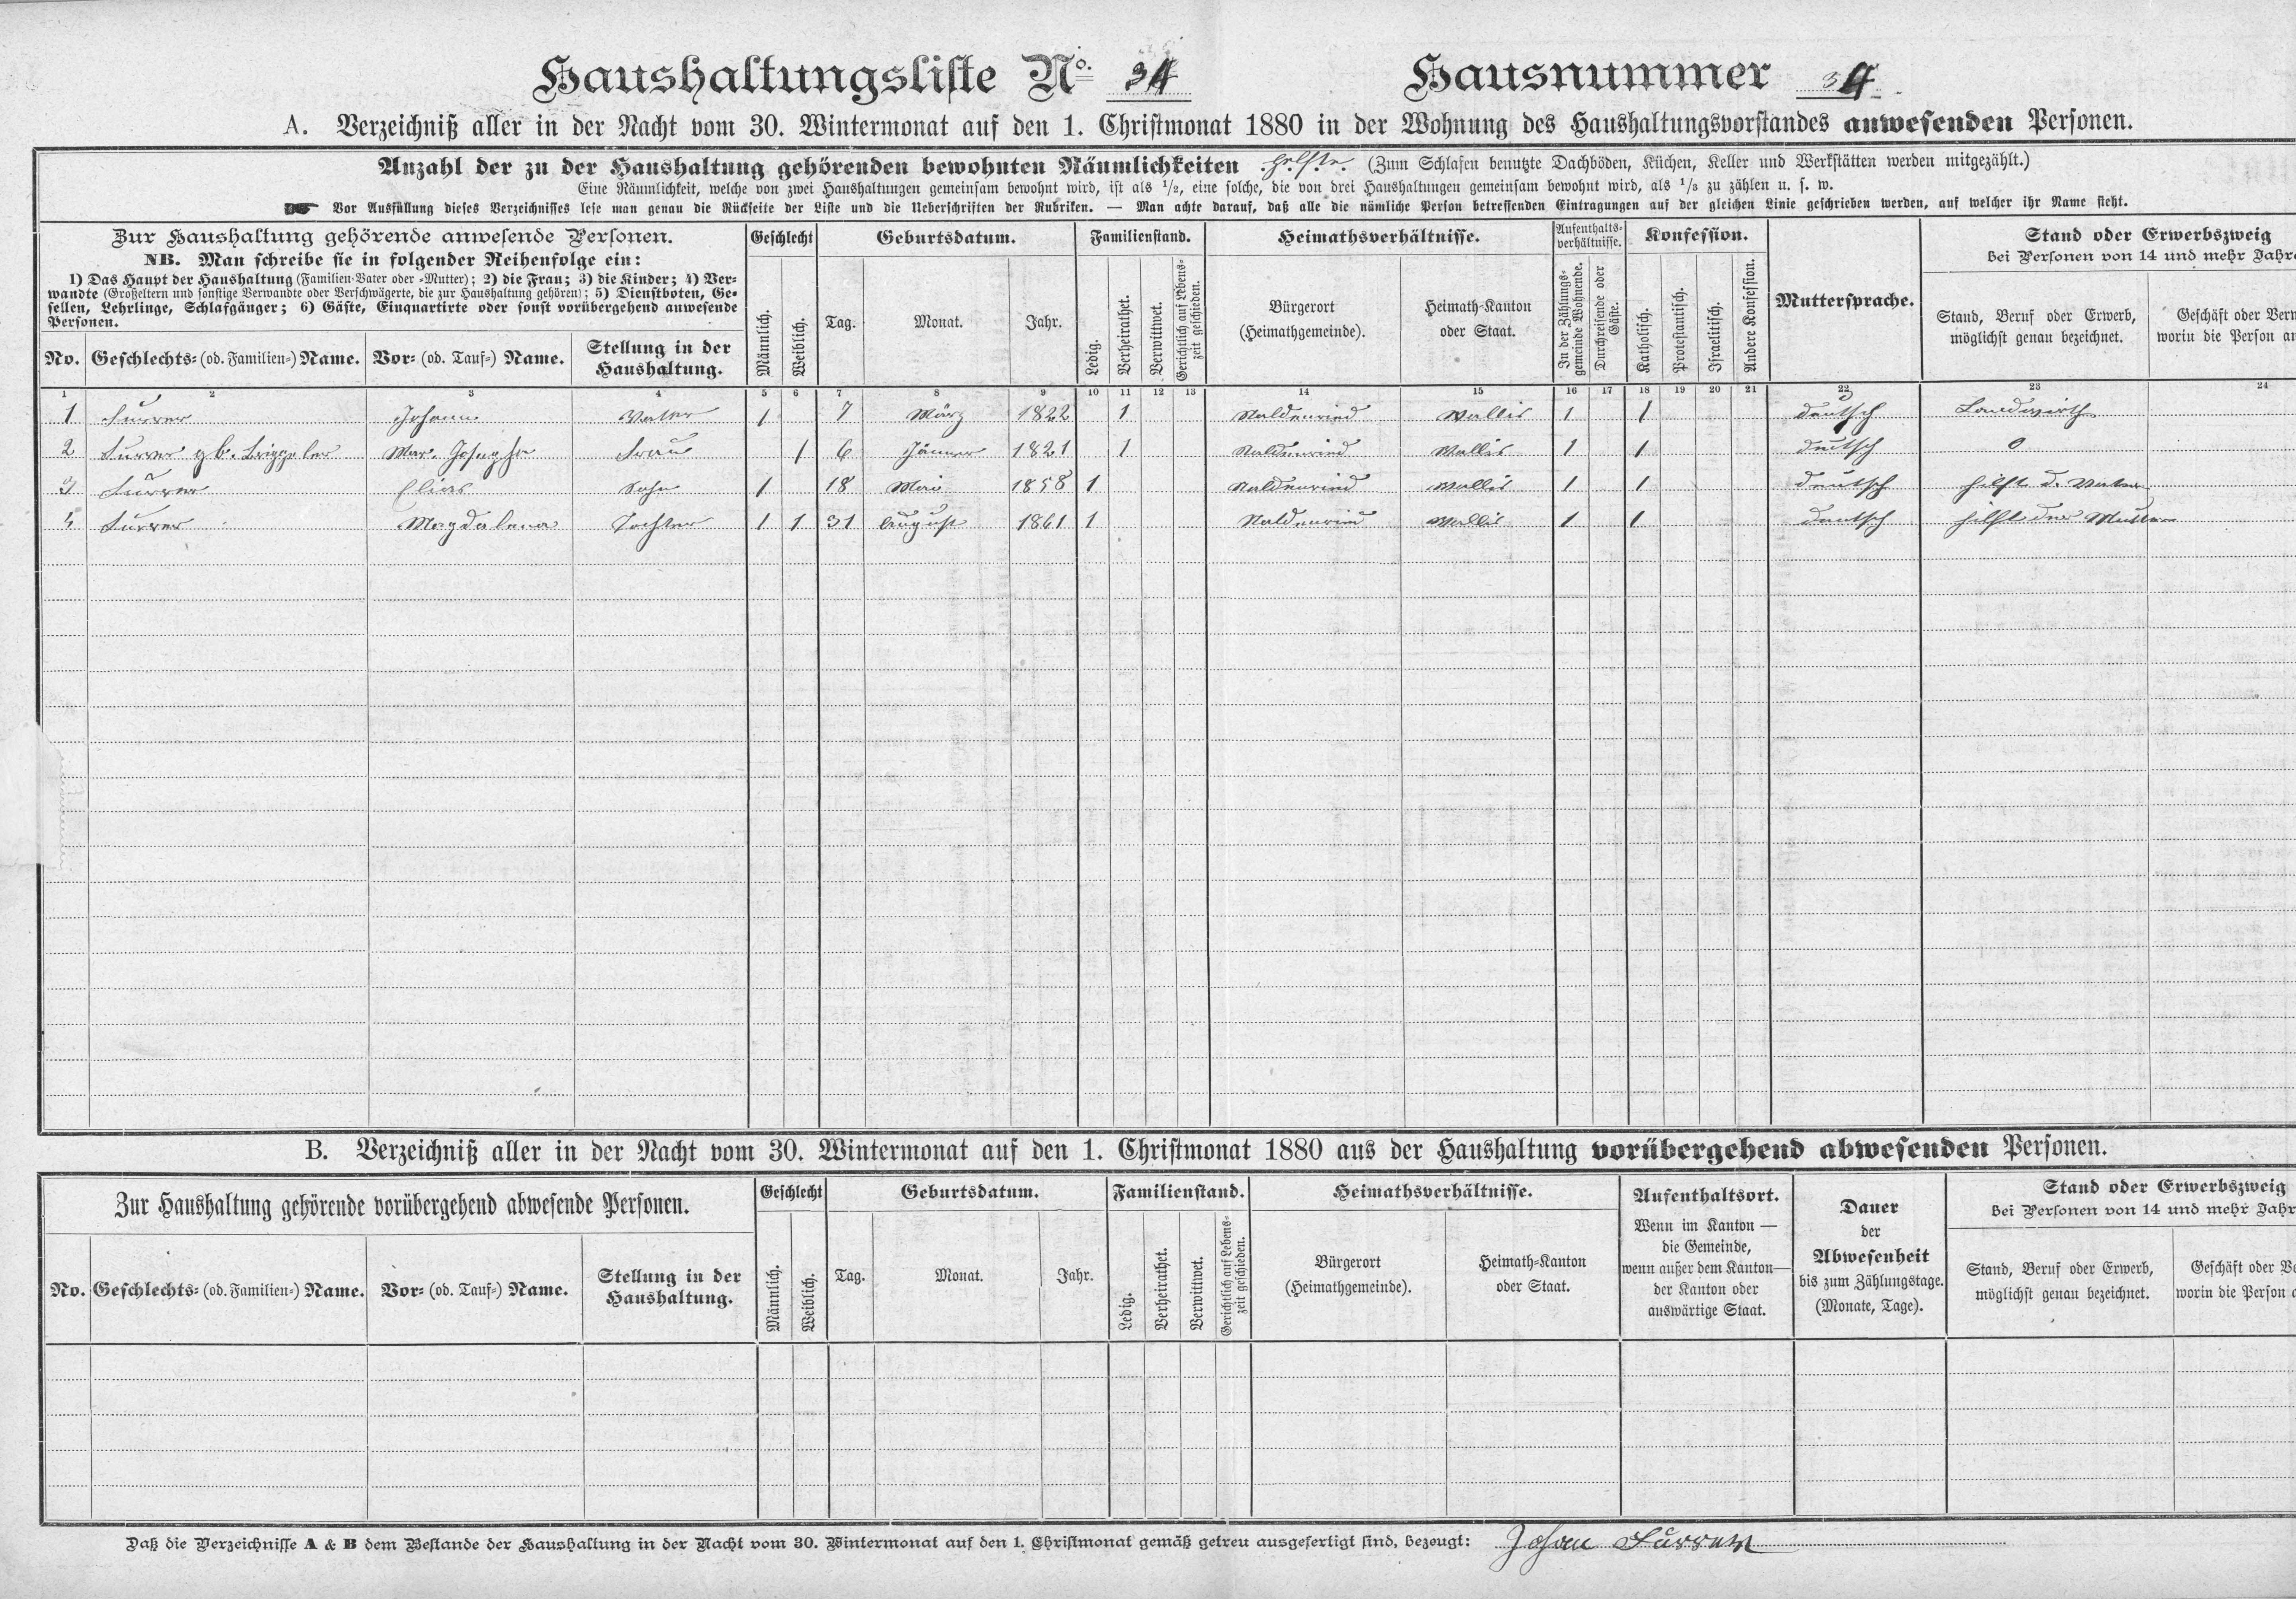 Haushaltungsliste No. 34 Hausnummer 34
A. Verzeichniß aller in der Nacht vom 30. Wintermonat auf den 1. Christmonat 1880 in der Wohnung des Haushaltungsvorstandes anwesenden Personen.
Anzahl der zu der Haushaltung gehörenden bewohnten Räumlichkeiten helfte (Zum Schlafen benutzte Dachböden, Küchen, Keller und Werkstätten werden mitgezählt.)
Eine Räumlichkeit, welche von zwei Haushaltungen gemeinsam bewohnt wird, ist als 1/2, eine solche, die von drei Haushaltungen gemeinsam bewohnt wird, als 1/3 zu zählen u. s. w.
Vor Ausfüllung dieses Verzeichnisses lese man genau die Rückseite der Liste und die Ueberschriften der Rubriken. — Man achte darauf, daß alle die nämliche Person betreffenden Eintragungen auf der gleichen Linie geschrieben werden, auf welcher ihr Name steht.
Zur Haushaltung gehörende anwesende Personen.
NB. Man schreibe sie in folgender Reihenfolge ein:
1) Das Haupt der Haushaltung (Familien-Vater oder -Mutter); 2) die Frau; 3) die Kinder; 4) Ver-
wandte (Großeltern und sonstige Verwandte oder Verschwägerte, die zur Haushaltung gehören); 5) Dienstboten, Ge-
sellen, Lehrlinge, Schlafgänger; 6) Gäste, Einquartirte oder sonst vorübergehend anwesende
Personen.
No. Geschlechts- (od. Familien-) Name. Vor- (od. Tauf-) Name. Stellung in der
Haushaltung.
Geschlecht
Männlich. Weiblich.
Geburtsdatum.
Tag. Monat. Jahr.
Familienstand.
Ledig. Verheirathet. Verwittwet. Gerichtlich auf Lebens-
zeit geschieden.
Heimathsverhältnisse.
Bürgerort
(Heimathgemeinde).
Heimath-Kanton
oder Staat.
Aufenthalts-
verhältnisse.
In der Zählungs-
gemeinde Wohnende.
Durchreisende oder
Gäste.
Konfession.
Katholisch. Protestantisch. Israelitisch. Andere Konfession.
Muttersprache.
Stand oder Erwerbszweig
bei Personen von 14 und mehr Jahr
Stand, Beruf oder Erwerb,
möglichst genau bezeichnet.
Geschäft oder Ver
worin die Person a
1 2 3 4 5 6 7 8 9 10 11 12 13 14 15 16 17 18 19 20 21 22 23 24
1 Furrer Johann Vater 1 7 März 1822 1 Staldenried Wallis 1 1 deutsch Landwirth
2 Furrer gb. Briggeler Mar. Josepha Frau 1 6 Jänner 1821 1 Staldenried Wallis 1 1 deutsch 0
3 Furrer Elias Sohn 1 18 Mai 1858 1 Staldenried Wallis 1 1 deutsch hilft d. Vater
4 Furrer Magdalena Tochter 1 1 31 August 1861 1 Staldenried Wallis 1 1 deutsch hilft der Mutter
B. Verzeichniß aller in der Nacht vom 30. Wintermonat auf den 1. Christmonat 1880 aus der Haushaltung vorübergehend abwesenden Personen.
Zur Haushaltung gehörende vorübergehend abwesende Personen.
No. Geschlechts- (od. Familien-) Name. Vor- (od. Tauf-) Name. Stellung in der
Haushaltung.
Geschlecht
Männlich. Weiblich.
Geburtsdatum.
Tag. Monat. Jahr.
Familienstand.
Ledig. Verheirathet. Verwittwet. Gerichtlich auf Lebens-
zeit geschieden.
Heimathsverhältnisse.
Bürgerort
(Heimathgemeinde).
Heimath-Kanton
oder Staat.
Aufenthaltsort.
Wenn im Kanton —
die Gemeinde,
wenn außer dem Kanton —
der Kanton oder
auswärtige Staat.
Dauer
der
Abwesenheit
bis zum Zählungstage.
(Monate, Tage).
Stand oder Erwerbszweig
bei Personen von 14 und mehr Jahr
Stand, Beruf oder Erwerb,
möglichst genau bezeichnet.
Geschäft oder Ve
worin die Person
Daß die Verzeichnisse A & B dem Bestande der Haushaltung in der Nacht vom 30. Wintermonat auf den 1. Christmonat gemäß getreu ausgefertigt sind, bezeugt: Johan Furrer